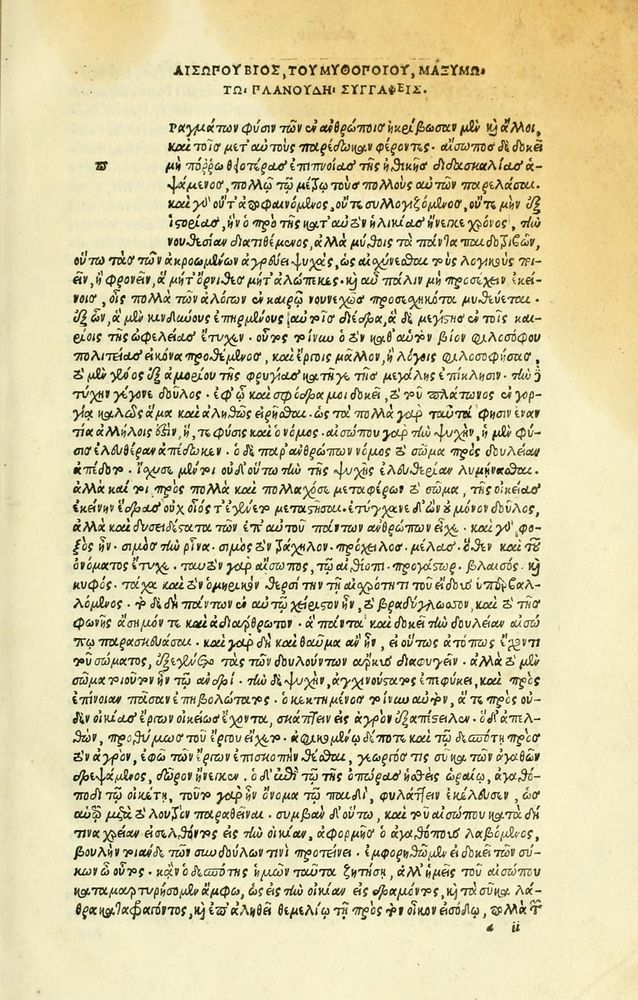 ΑΙΣΩΠΟΥ ΒΙΟΣ, ΤΟΥ ΜΥΘΟΠΟΙΟΥ, ΜΑΞΙΜΩ͂
ΤΩ͂ ΠΛΑΝΟΥΔΗ ΣΥΓΓΑΦΕΙΣ.
ραγμάτων φύσιν τῶν ἐν ἀνθρώποις ἠκρίβωσαν μὲν καὶ ἄλλοι,
καὶ τοῖς μετ' αὐτοὺς παρέδωκαν φέροντες. αἴσωπος δὲ δοκεῖ
π μὴ πόρρω θειοτέρας ἐπιπνοίας τῆς ἠθικῆς διδασκαλίας ἁ-
ψάμενος, πολλῷ τῷ μέτρῳ τοὺς πολλοὺς αὐτῶν παρελάσαι.
καὶ γὰρ οὔτ' ἀποφαινόμενος, οὔτε συλλογιζόμενος, οὔτε μὴν ἐξ
ἱστορίας, ἣν ὁ πρὸ τῆς κατ' αὐτὸν ἡλικίας ἤνεγκε χρόνος, τὴν
νουθεσίαν διατιθέμενος, ἀλλὰ μύθοις τὰ πάντα παιδοτριβῶν,
οὕτω τὰς τῶν ἀκροωμένων ἀγρεύει ψυχὰς, ὡς αἰσχύνεσθαι τοὺς λογικοὺς ποι-
εῖν, ἢ φρονεῖν, ἃ μήτ' ὄρνιθες μήτ' ἀλώπεκες. καὶ αὖ πάλιν μὴ προσέχειν ἐκεί-
νοις, οἷς πολλὰ τῶν ἀλόγων ἐν καιρῷ νουνεχῶς προσεσχηκότα μυθεύεται.
ἐξ ὧν, ἃ μὲν κινδύνους ἐπηρμένους αὐτοῖς διέδρα, ἃ δὲ μεγίστης ἐν τοῖς και-
ρίοις τῆς ὠφελείας ἔτυχεν. οὗτος τοίνυν ὁ τὸν καθ' αὑτὸν βίον φιλοσόφου
πολιτείας εἰκόνα προθέμενος, καὶ ἔργοις μᾶλλον, ἢ λόγοις φιλοσοφήσας,
τὸ μὲν γένος ἐξ ἀμορίου τῆς φρυγίας κατῆγε τῆς μεγάλης ἐπίκλησιν. τὴν δὲ
τύχην γέγονε δοῦλος. ἐφ' ᾧ καὶ σφόδρα μοι δοκεῖ, τὸ τοῦ πλάτωνος ἐν γορ-
γίᾳ καλῶς ἅμα καὶ ἀληθῶς εἰρῆσθαι. ὡς τὰ πολλὰ γὰρ ταῦτά φησιν ἐναν
τία ἀλλήλοις ἐστὶν, ἥ, τε φύσις καὶ ὁ νόμος. αἰσώπου γὰρ τὴν ψυχὴν, ἡ μὲν φύ-
σις ἐλευθέραν ἀπέδωκεν. ὁ δὲ παρ' ἀνθρώπων νόμος τὸ σῶμα πρὸς δουλείαν
ἀπέδοτο. ἴσχυσε μέντοι οὐδ' οὕτω τὴν τῆς ψυχῆς ἐλευθερίαν λυμήνασθαι.
ἀλλὰ καί τοι πρὸς πολλὰ καὶ πολλαχόσε μεταφέρων τὸ σῶμα, τῆς οἰκείας
ἐκείνην ἕδρας οὐχ οἷός τ' ἐγένετο μεταστῆσαι. ἐτύγχανε δ' ὢν οὐ μόνον δοῦλος,
ἀλλὰ καὶ δυσειδέστατα τῶν ἐπ' αὐτοῦ πάντων ἀνθρώπων εἶχε. καὶ γὰρ φο-
ξὸς ἦν. σιμὸς τὴν ῥῖνα. σιμὸς τὸν τράχηλον. πρόχειλος. μέλας. ὅθεν καὶ τοῦ
ὀνόματος ἔτυχε. ταυτὸν γὰρ αἴσωπος, τῷ αἰθίοπι. προγάστωρ. βλαισὸς. καὶ
κυφός. τάχα καὶ τὸν ὁμηρικὸν θερσίτην τῇ αἰσχρότητι τοῦ εἴδους ὑπερβαλ-
λόμενος. τὸ δὲ δὴ πάντων ἐν αὐτῷ χείριστον ἦν, τὸ βραδύγλωσσον, καὶ τὸ τῆς
φωνῆς ἄσημόν τε καὶ ἀδιάρθρωτον. ἃ πάντα καὶ δοκεῖ τὴν δουλείαν αἰσώ
πῳ παρασκευάσαι. καὶ γὰρ δὴ καὶ θαῦμα ἂν ἦν, εἰ οὕτως ἀτόπως ἔχοντι
τοῦ σώματος, ἐξεγένετο τὰς τῶν δουλούντων ἄρκυς διαφυγεῖν. ἀλλὰ τὸ μὲν
σῶμα τοιοῦτον ἦν τῷ ἀνδρί. τὴν δὲ ψυχὴν, ἀγχινούστατος ἐπεφύκει, καὶ πρὸς
ἐπίνοιαν πᾶσαν ἐπηβολώτατος. ὁ κεκτημένος τοίνυν αὐτὸν, ἅ τε πρὸς οὐ-
δὲν οἰκίας ἔργον οἰκείως ἔχοντα, σκάπτειν εἰς ἀγρὸν ἐξαπέστειλεν. ὁ δ' ἀπελ-
θὼν, προθύμως τοῦ ἔργου εἴχετο. ἀφικομένῳ δέ ποτε καὶ τῷ δεσπότῃ πρὸς
τὸν ἀγρὸν, ἐφ' ᾧ τῶν ἔργων ἐπισκοπὴν θέσθαι, γεωργός τις σῦκα τῶν ἀγαθῶν
δρεψάμενος, δῶρον ἤνεγκεν. ὁ δὲ ἐπὶ τῷ τῆς ὀπώρας ἡσθεὶς ὡραίῳ, ἀγαθό-
ποδι τῷ οἰκέτῃ, τοῦτο γὰρ ἦν ὄνομα τῷ παιδί, φυλάττειν ἐκέλευσεν, ὡς
αὐτῷ μετὰ τὸ λουτρὸν παραθεῖναι. συμβὰν δ' οὕτω, καὶ τοῦ αἰσώπου κατὰ δή
τινα χρείαν εἰσελθόντος εἰς τὴν οἰκίαν, ἀφορμῆς ὁ ἀγαθόπους λαβόμενος,
βουλὴν τοιάνδε τῶν συνδούλων τινὶ προτείνει. ἐμφορηθῶμεν εἰ δοκεῖ τῶν σύ-
κων ὦ οὗτος. κἂν ὁ δεσπότης ἡμῶν ταῦτα ζητήσῃ, ἀλλ' ἡμεῖς τοῦ αἰσώπου
καταμαρτυρήσομεν ἄμφω, ὡς εἰς τὴν οἰκίαν εἰσδραμόντος, καὶ τὰ σῦκα λά-
θρα καταφαγόντος, καὶ ἐπ' ἀληθεῖ θεμελίῳ τῇ πρὸς τὸν οἶκον εἰσόδῳ, πολλὰ τῶν
a ii